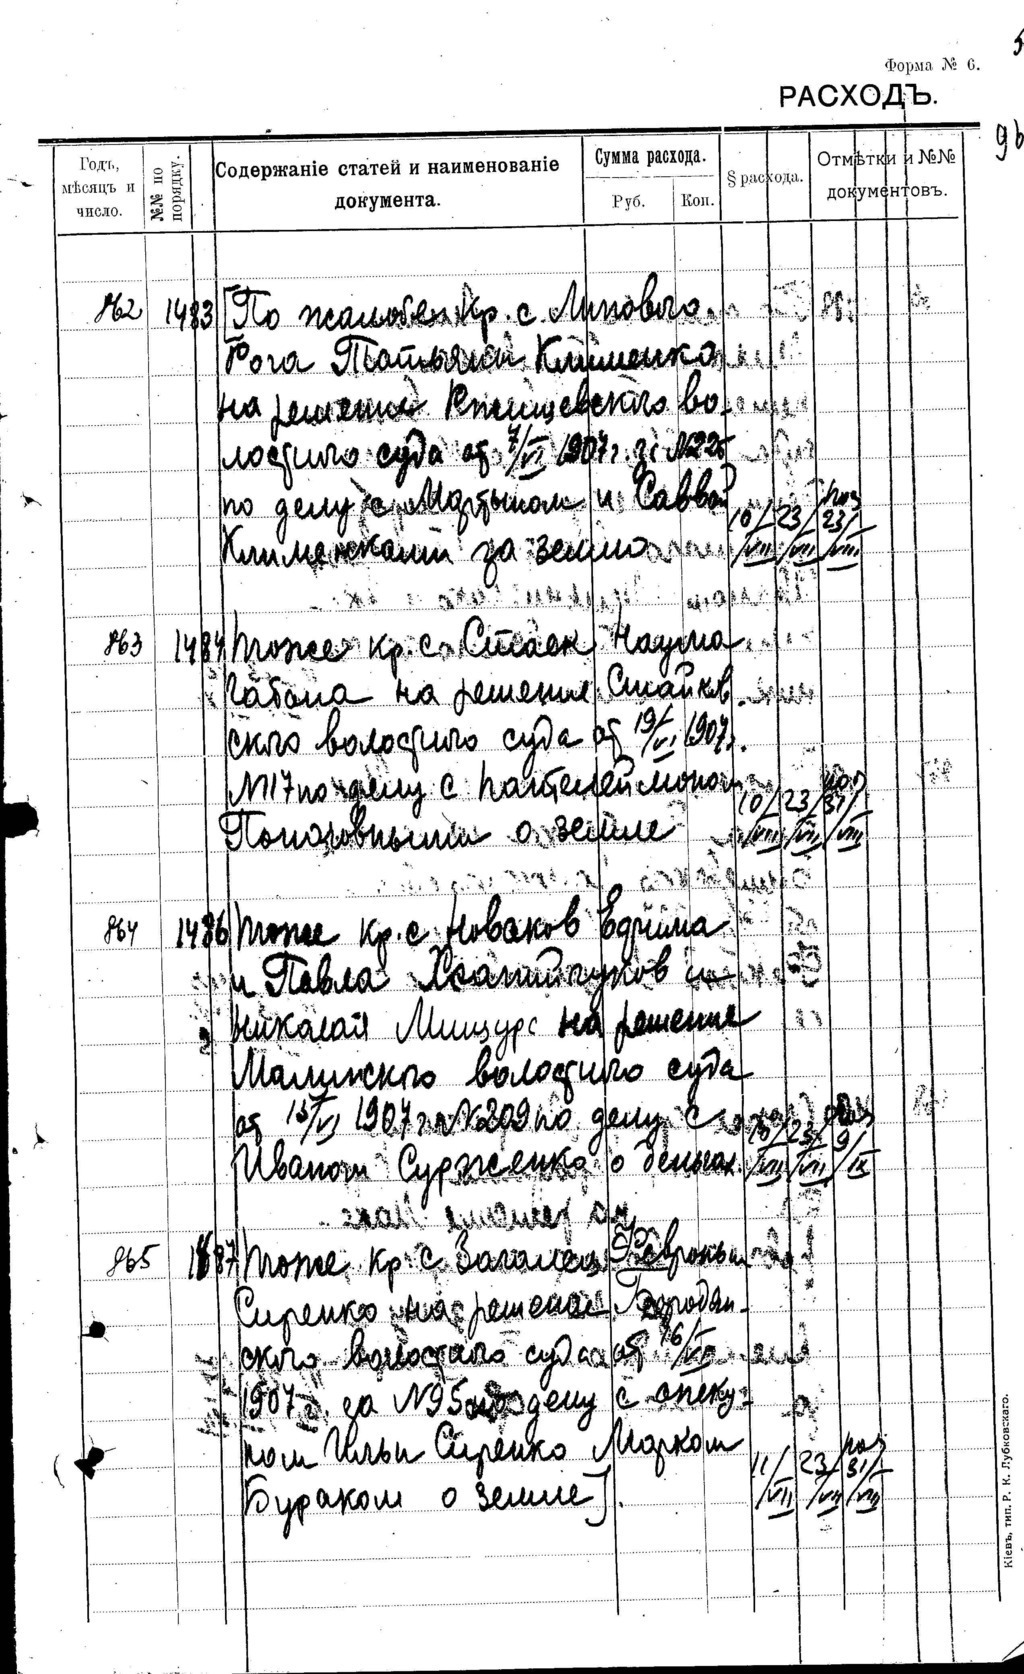 Форма № 6.
РАСХОДЪ.
Годъ, мѣсяцъ и число.
№№ по порядку.
Содержаніе статей и наименованіе документа.
Сумма расхода.
Руб.
Коп.
§ расхода.
Отмѣтки и №№ документовъ.
862 1483 По жалобе кр. с. Липового
Рога Татьяны Клименко
на решение Ржищевского во-
лостного суда от 7/VI 1907 г. за №225
по делу с Мартыном и Саввой
Клименками за землю
10/VII 23/VII 23/VIII
863 1484 тоже кр. с. Стаек Наума
на решение Стайков
ского волостного суда от 19/VI 1907 г.
№17 по делу с Пантелеймоном
о земле
10/VII 23/VII 31/VIII
864 1486 тоже кр. с. Новаков Ефима
и Павла и
Николая на решение
Малинского волостного суда
от 15/VI 1907 г. №209 по делу с
Иваном Сурженко о деньгах
10/VII 23/VII 9/IX
865 1487 тоже кр. с. Февроньи
Сиренко на решение Бородян-
ского волостного суда от 16/VI
1907 г. за №95 по делу с опеку-
ном Ильи Сиренко Марком
Бураком о земле
11/VII 23/VII 31/VIII
Кіевъ, тип. Р. К. Лубковскаго.